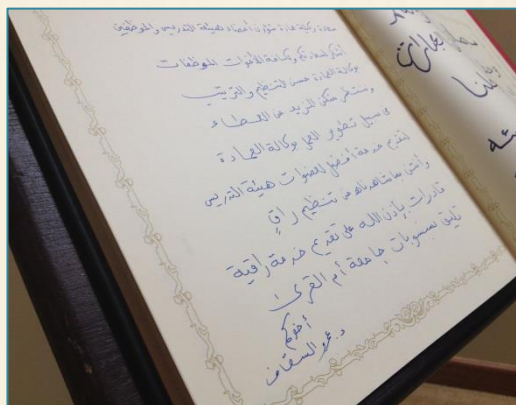 سعادة وكيلة عمادة شؤون أعضاء هيئة التدريس والموظفين
أشكر لسعادتكم ولكافة الأخوات الموظفات
بوكالة العمادة حسن التنظيم والترتيب
وننتظر منكن المزيد من العطاء
في سبيل تطوير العمل بوكالة العمادة
لتقديم خدمة أفضل لعضوات هيئة التدريس
وأثق بما شاهدناه من تنظيم راقٍ
قادرات بإذن الله على تقديم خدمة راقية
تليق بمنسوبات جامعة أم القرى
أخوكم
د. عمرو السقاف